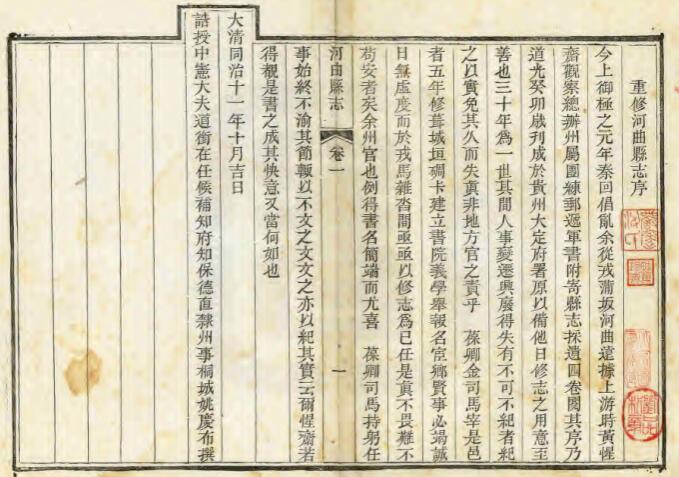 重修河曲縣志序
今上御極之元年秦回倡亂余從戎蒲坂河曲遠據上游時黃惺
齋觀察總辦州屬團練郵遞軍書附寄縣志採遺四卷閱其序乃
道光癸卯歲刊成於貴州大定府署原以備他日修志之用意至
善也三十年爲一世其間人事變遷興廢得失有不可不紀者紀
之以實免其久而失真非地方官之責乎 葆卿金司馬宰是邑
者五年修葺城垣碉卡建立書院義學舉報名宦鄉賢事必竭誠
日無虛度而於戎馬雜沓間亟亟以修志爲己任是真不畏難不
苟安者矣余州官也例得書名簡端而尤喜 葆卿司馬持躬任
河曲縣志 卷一 一
事始終不渝其節輒以不文之文文之亦以紀其實云爾惺齋若
得覩是書之成其快意又當何如也
大清同治十一年十月吉日
誥授中憲大夫道銜在任候補知府知保德直隸州事桐城姚慶布撰